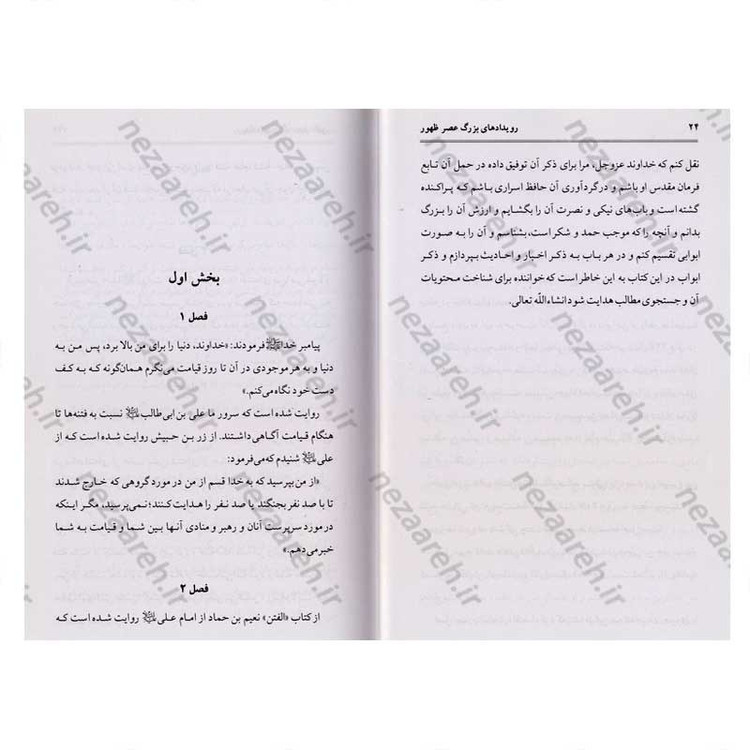 ۲۴ رویدادهای بزرگ عصر ظهور
نقل کنم که خداوند عزوجل، مرا برای ذکر آن توفیق داده در حمل آن تابع
فرمان مقدس او باشم و در گردآوری آن حافظ اسراری باشم که پراکنده
گشته است و باب‌های نیکی و نصرت آن را بگشایم و ارزش آن را بزرگ
بدانم و آنچه را که موجب حمد و شکر است، بشناسم و آن را به صورت
ابوابی تقسیم کنم و در هر باب به ذکر اخبار و احادیث بپردازم و ذکر
ابواب در این کتاب به این خاطر است که خواننده برای شناخت محتویات
آن و جستجوی مطالب هدایت شود انشاءالله تعالی.
بخش اول
فصل ۱
پیامبر خدا ﷺ فرمودند: «خداوند، دنیا را برای من بالا برد، پس من به
دنیا و به هر موجودی در آن تا روز قیامت می‌نگرم همان‌گونه که به کف
دست خود نگاه می‌کنم.»
روایت شده است که سرور ما علی بن ابی‌طالب نسبت به فتنه‌ها تا
هنگام قیامت آگاهی داشتند. از زر بن حبیش روایت شده است که از
علی شنیدم که می‌فرمود:
«از من بپرسید که به خدا قسم از من در مورد گروهی که خارج شدند
تا با صد نفر بجنگند یا صد نفر را هدایت کنند؛ نمی‌پرسید، مگر اینکه
در مورد سرپرست آنان و رهبر و منادی آنها بین شما و قیامت به شما
خبر می‌دهم.»
فصل ۲
از کتاب «الفتن» نعیم بن حماد از امام علی روایت شده است که
nezaareh.ir
nezaareh.ir
nezaareh.ir
nezaareh.ir
nezaareh.ir
nezaareh.ir
nezaareh.ir
nezaareh.ir
nezaareh.ir